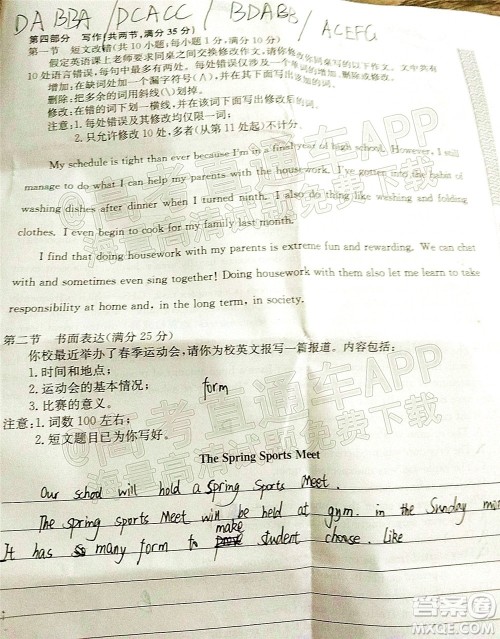 DABBA / DCACC / BDABB / ACEFG
第四部分 写作(共两节,满分 35 分)
第一节 短文改错(共 10 小题;每小题 1 分,满分 10 分)
假定英语课上老师要求同桌之间交换修改作文,请你修改你同桌写的以下作文。文中共有
10 处语言错误,每句中最多有两处。每处错误仅涉及一个单词的增加、删除或修改。
增加:在缺词处加一个漏字符号(∧),并在其下面写出该加的词。
删除:把多余的词用斜线(\)划掉。
修改:在错的词下划一横线,并在该词下面写出修改后的词。
注意:1. 每处错误及其修改均仅限一词;
2. 只允许修改 10 处,多者(从第 11 处起)不计分。
My schedule is tight than ever because I'm in a final year of high school. However, I still
manage to do what I can help my parents with the housework. I've gotten into the habit of
washing dishes after dinner when I turned ninth. I also do thing like washing and folding
clothes. I even begin to cook for my family last month.
I find that doing housework with my parents is extreme fun and rewarding. We can chat
with and sometimes even sing together! Doing housework with them also let me learn to take
responsibility at home and, in the long term, in society.
第二节 书面表达(满分 25 分)
你校最近举办了春季运动会,请你为校英文报写一篇报道。内容包括:
1. 时间和地点;
2. 运动会的基本情况; form
3. 比赛的意义。
注意:1. 词数 100 左右;
2. 短文题目已为你写好。
The Spring Sports Meet
Our school will hold a spring sports Meet.
The spring sports Meet will be held at gym. in the Sunday
make
It has so many form to student choose. Like
@高考直通车APP
海量高清试题免费下载
@高考直通车APP
海量高清试题免费下载
答案圈
MXQE.COM